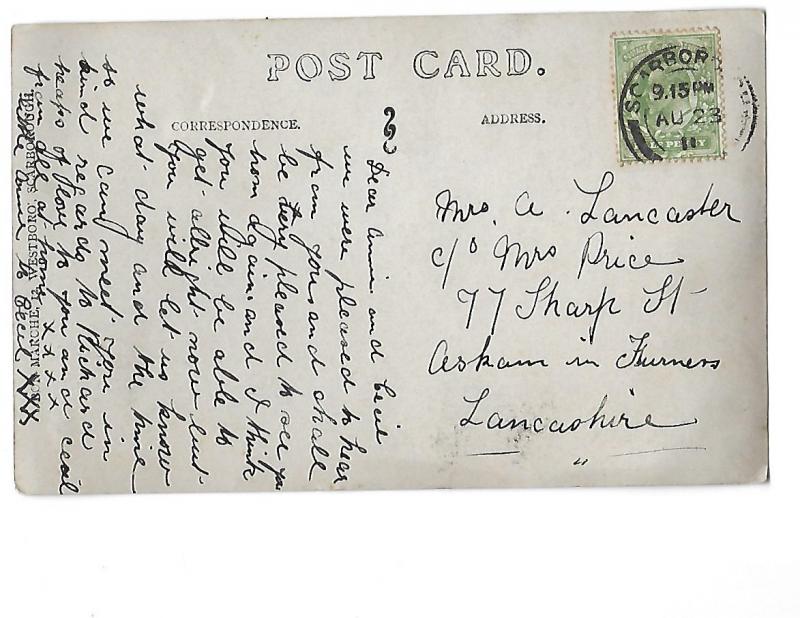 POST CARD.
CORRESPONDENCE.
ADDRESS.
SCARBORO
9.15 PM
AU 23
11
Mrs. A. Lancaster
c/o Mrs Price
77 Sharp St
Askam in Furness
Lancashire
Dear Annie and Cecil
we were pleased to hear
from you and shall
be very pleased to see you
hom again and I think
you will be able to
get allright now but
you will let us know
what day and the time
so we can meet you in
kind regards to Richard
heaps of love to you and Cecil
from all at home xxxx
to Cecil XXX
BON MARCHE, WESTBORO', SCARBOROUGH.